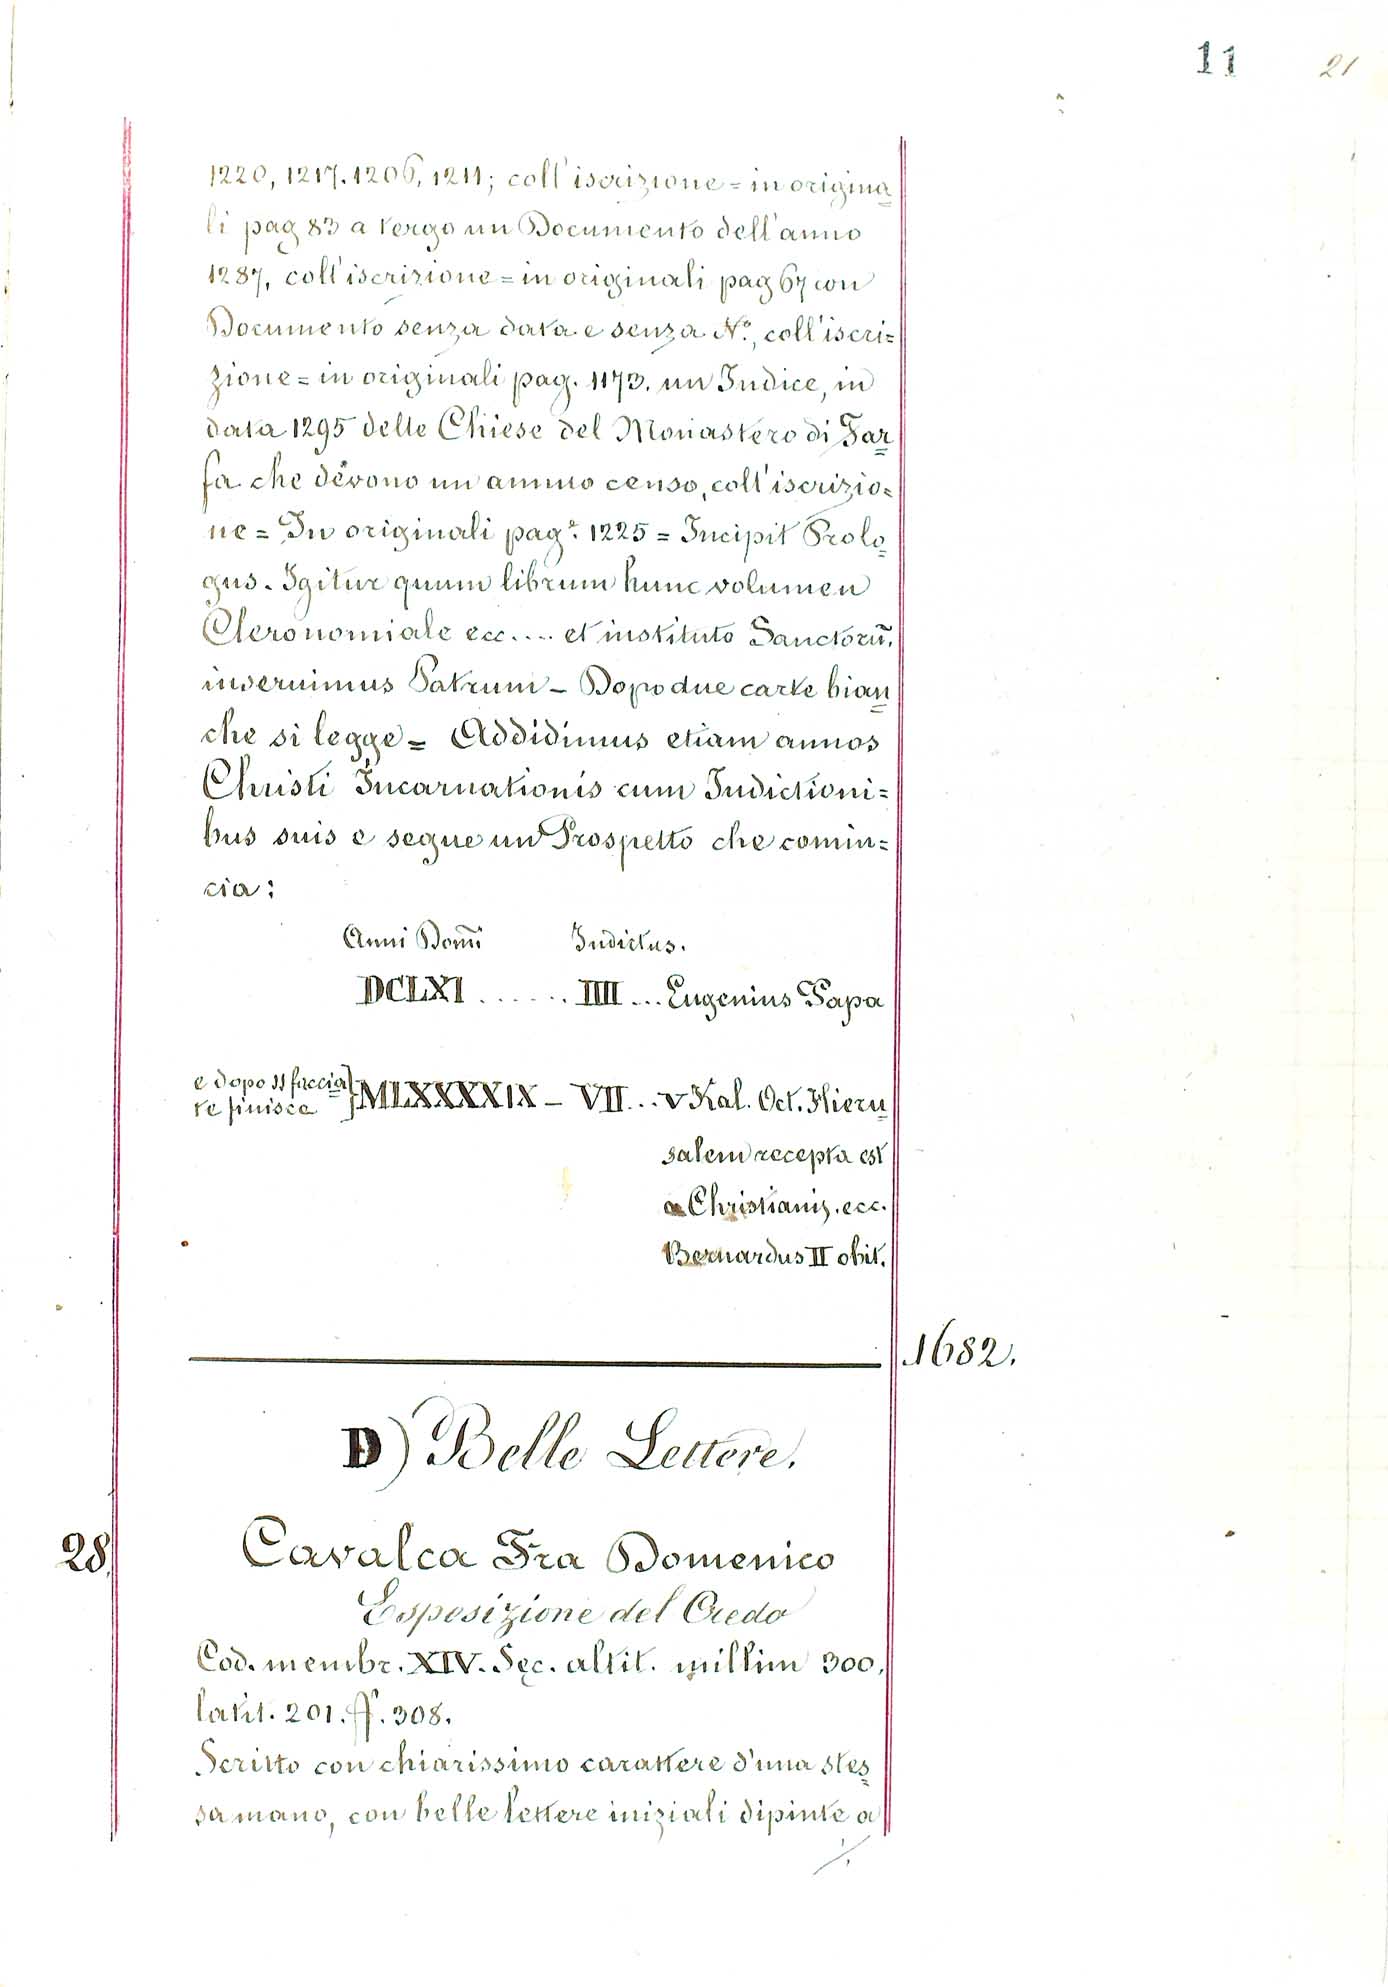 11 21
1220, 1217. 1206, 1211; coll'iscrizione = in origina=
li pag 83 a tergo un Documento dell'anno
1287, coll'iscrizione = in originali pag 67 con
Documento senza data e senza N.º, coll'iscri=
zione = in originali pag. 1173. un Indice, in
data 1295 delle Chiese del Monastero di Far=
fa che devono un annuo censo, coll'iscrizio=
ne = In originali pag.ª 1225 = Incipit Prolo=
gus. Igitur quum librum hunc volumen
Cleronomiale ecc.... et instituto Sanctorū.
inseruimus Patrum - Dopo due carte bian=
che si legge = Addidimus etiam annos
Christi Incarnationis cum Indictioni=
bus suis e segue un Prospetto che comin=
cia:
Anni Domī Indictus.
DCLXI ....... IIII ... Eugenius Papa
e dopo 11 faccia=
te finisce } MLXXXXIX - VII ... V Kal. Oct. Hieru=
salem recepta est
a Christianis. ecc.
Bernardus II obit.
1682.
D) Belle Lettere.
28. Cavalca Fra Domenico
Esposizione del Credo
Cod. membr. XIV. Sec. altit. millim 300.
latit. 201. ff. 308.
Scritto con chiarissimo carattere d'una stes=
sa mano, con belle lettere iniziali dipinte a
./.